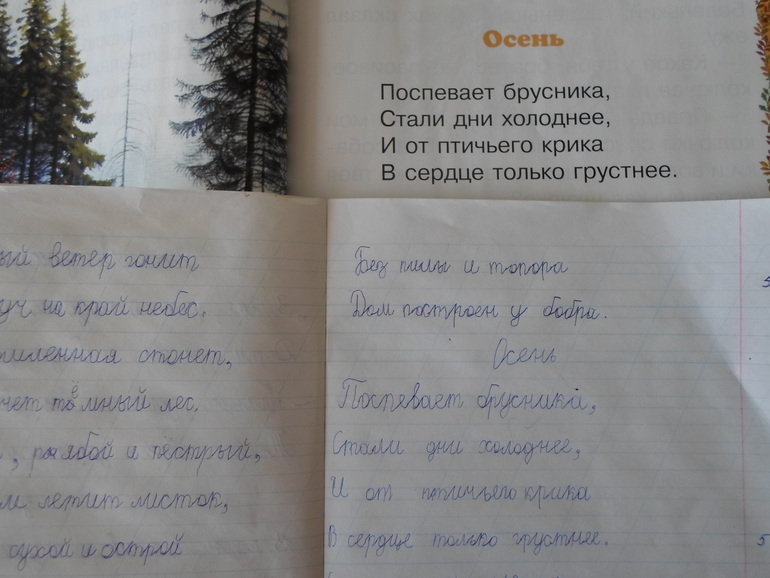 Осень
Поспевает брусника,
Стали дни холоднее,
И от птичьего крика
В сердце только грустнее.
ветер гонит
на край небес.
стонет,
лес.
рябой и пёстрый,
летит листок,
сухой и острой
Без пилы и топора
Дом построен у бобра.
Осень
Поспевает брусника,
Стали дни холоднее,
И от птичьего крика
В сердце только грустнее.
5
5